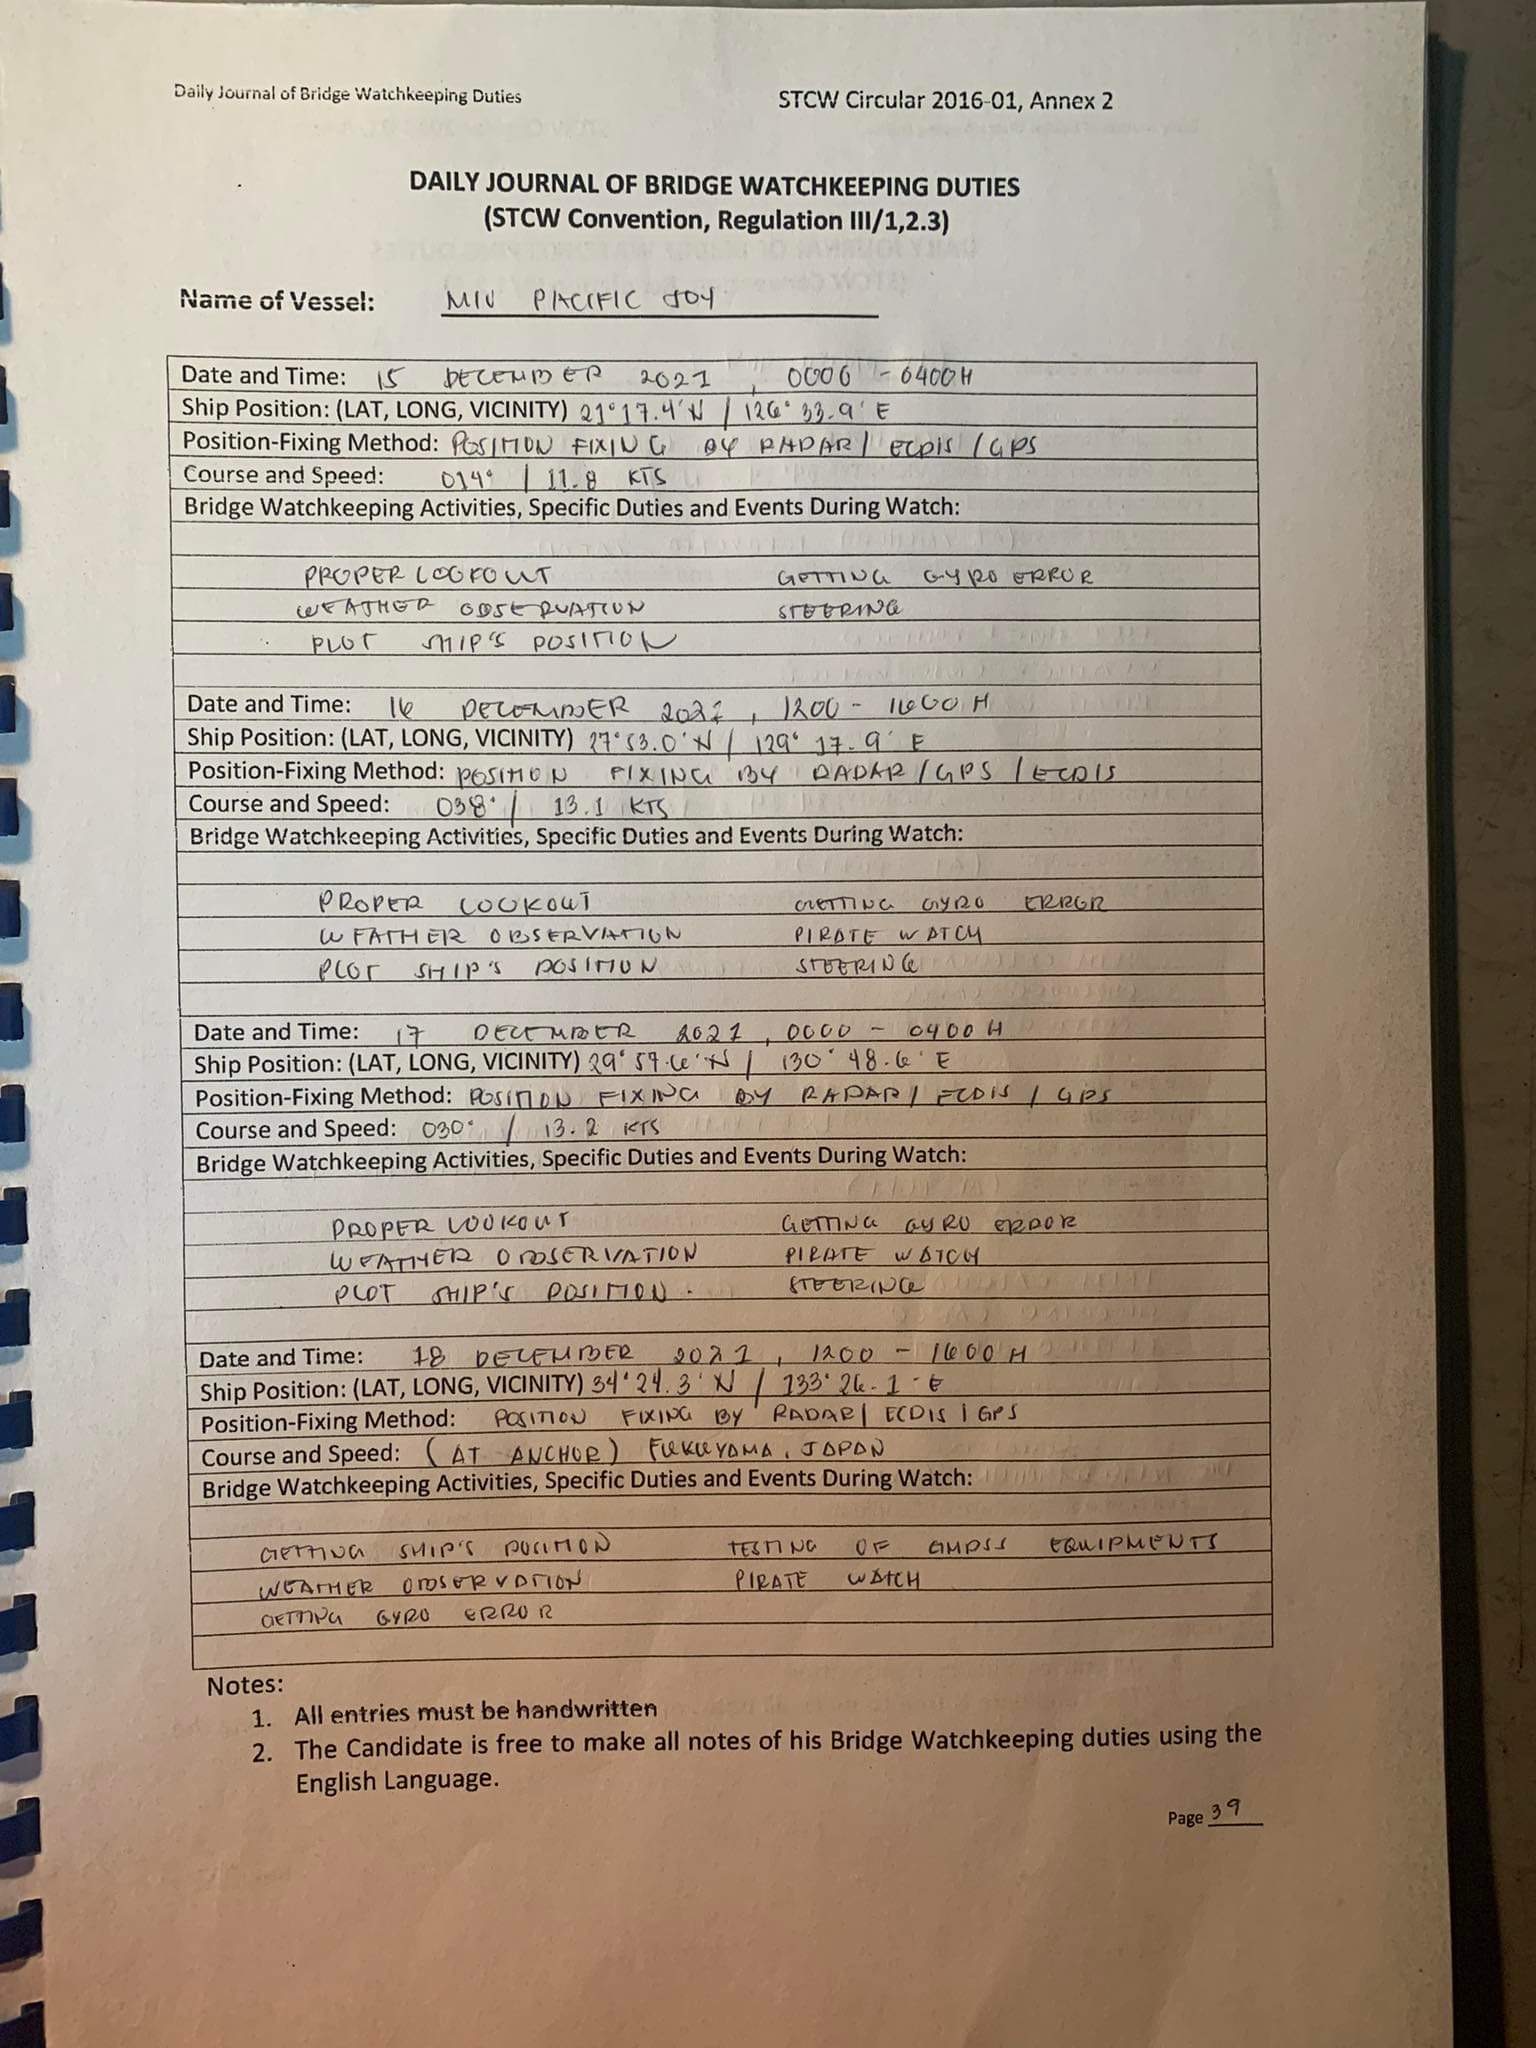 Daily Journal of Bridge Watchkeeping Duties STCW Circular 2016-01, Annex 2
DAILY JOURNAL OF BRIDGE WATCHKEEPING DUTIES
(STCW Convention, Regulation III/1,2.3)
Name of Vessel: M/V PACIFIC JOY
Date and Time: 15 DECEMBER 2021, 0000 - 0400H
Ship Position: (LAT, LONG, VICINITY) 21°17.4'N / 126° 33.9' E
Position-Fixing Method: POSITION FIXING BY RADAR / ECDIS / GPS
Course and Speed: 014° / 11.8 KTS
Bridge Watchkeeping Activities, Specific Duties and Events During Watch:
PROPER LOOKOUT GETTING GYRO ERROR
WEATHER OBSERVATION STEERING
PLOT SHIP'S POSITION
Date and Time: 16 DECEMBER 2021, 1200 - 1600 H
Ship Position: (LAT, LONG, VICINITY) 27°53.0'N / 129° 17.9' E
Position-Fixing Method: POSITION FIXING BY RADAR / GPS / ECDIS
Course and Speed: 038° / 13.1 KTS
Bridge Watchkeeping Activities, Specific Duties and Events During Watch:
PROPER LOOKOUT GETTING GYRO ERROR
WEATHER OBSERVATION PIRATE WATCH
PLOT SHIP'S POSITION STEERING
Date and Time: 17 DECEMBER 2021, 0000 - 0400 H
Ship Position: (LAT, LONG, VICINITY) 29° 57.6'N / 130° 48.6' E
Position-Fixing Method: POSITION FIXING BY RADAR / ECDIS / GPS
Course and Speed: 030° / 13.2 KTS
Bridge Watchkeeping Activities, Specific Duties and Events During Watch:
PROPER LOOKOUT GETTING GYRO ERROR
WEATHER OBSERVATION PIRATE WATCH
PLOT SHIP'S POSITION. STEERING
Date and Time: 18 DECEMBER 2021, 1200 - 1600 H
Ship Position: (LAT, LONG, VICINITY) 34°24.3'N / 133° 26.1' E
Position-Fixing Method: POSITION FIXING BY RADAR / ECDIS / GPS
Course and Speed: (AT ANCHOR) FUKUYAMA, JAPAN
Bridge Watchkeeping Activities, Specific Duties and Events During Watch:
GETTING SHIP'S POSITION TESTING OF GMDSS EQUIPMENTS
WEATHER OBSERVATION PIRATE WATCH
GETTING GYRO ERROR
Notes:
1. All entries must be handwritten
2. The Candidate is free to make all notes of his Bridge Watchkeeping duties using the
English Language.
Page 39